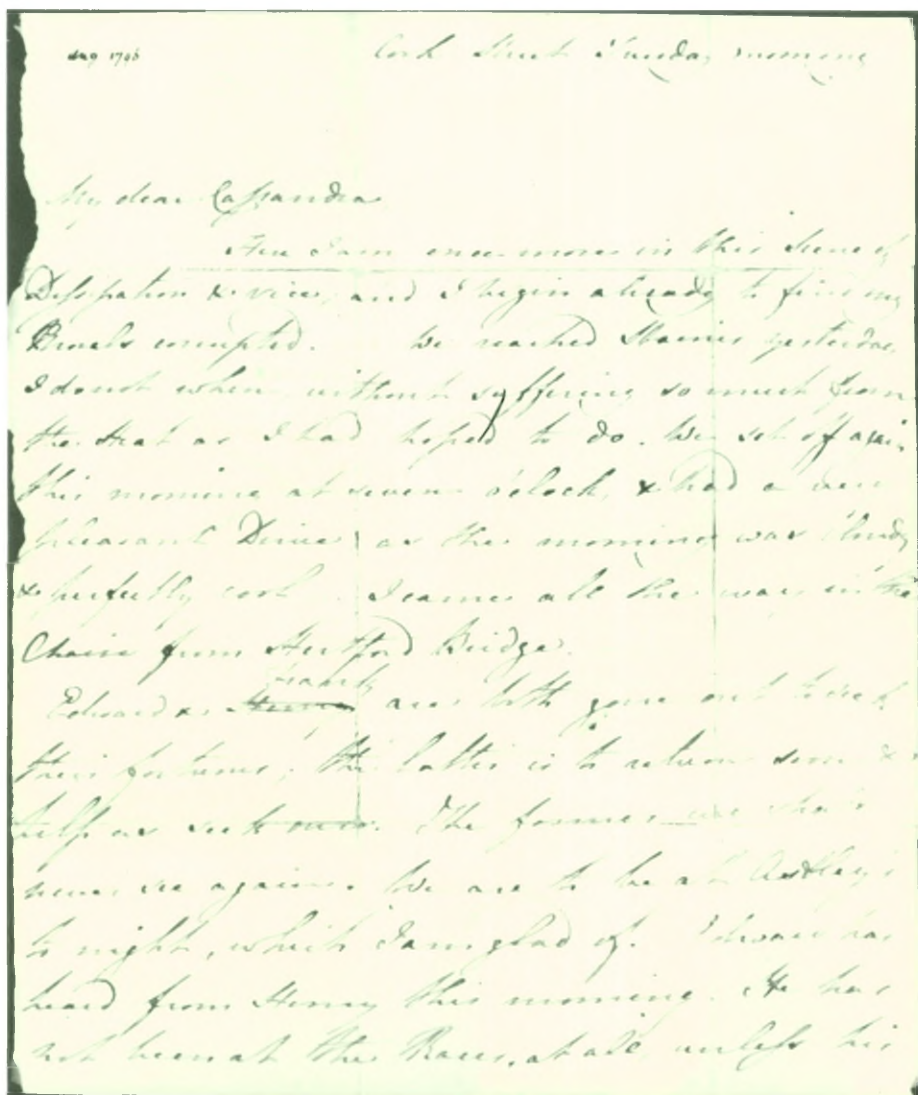 Aug 1796
Cork Street Tuesday morning
My dear Cassandra
Here I am once more in this Scene of
Dissipation & vice, and I begin already to find my
Morals corrupted. We reached Staines yesterday
I do not when without suffering so much from
the Heat as I had hoped to do. We set off again
this morning at seven o'clock, & had a very
pleasant Drive, as the morning was cloudy
& perfectly cool. I came all the way in the
Chaise from Hertford Bridge.
Frank
Edward & Henry are both gone out to seek
their fortunes; the latter is to return soon &
help us seek ours. The former we shall
never see again. We are to be at Astley's
to night, which I am glad of. Edward has
heard from Henry this morning. He has
not been at the Races, at all unless his